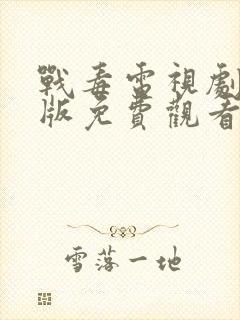 戰毒電視劇
版免費觀看
雪落一地